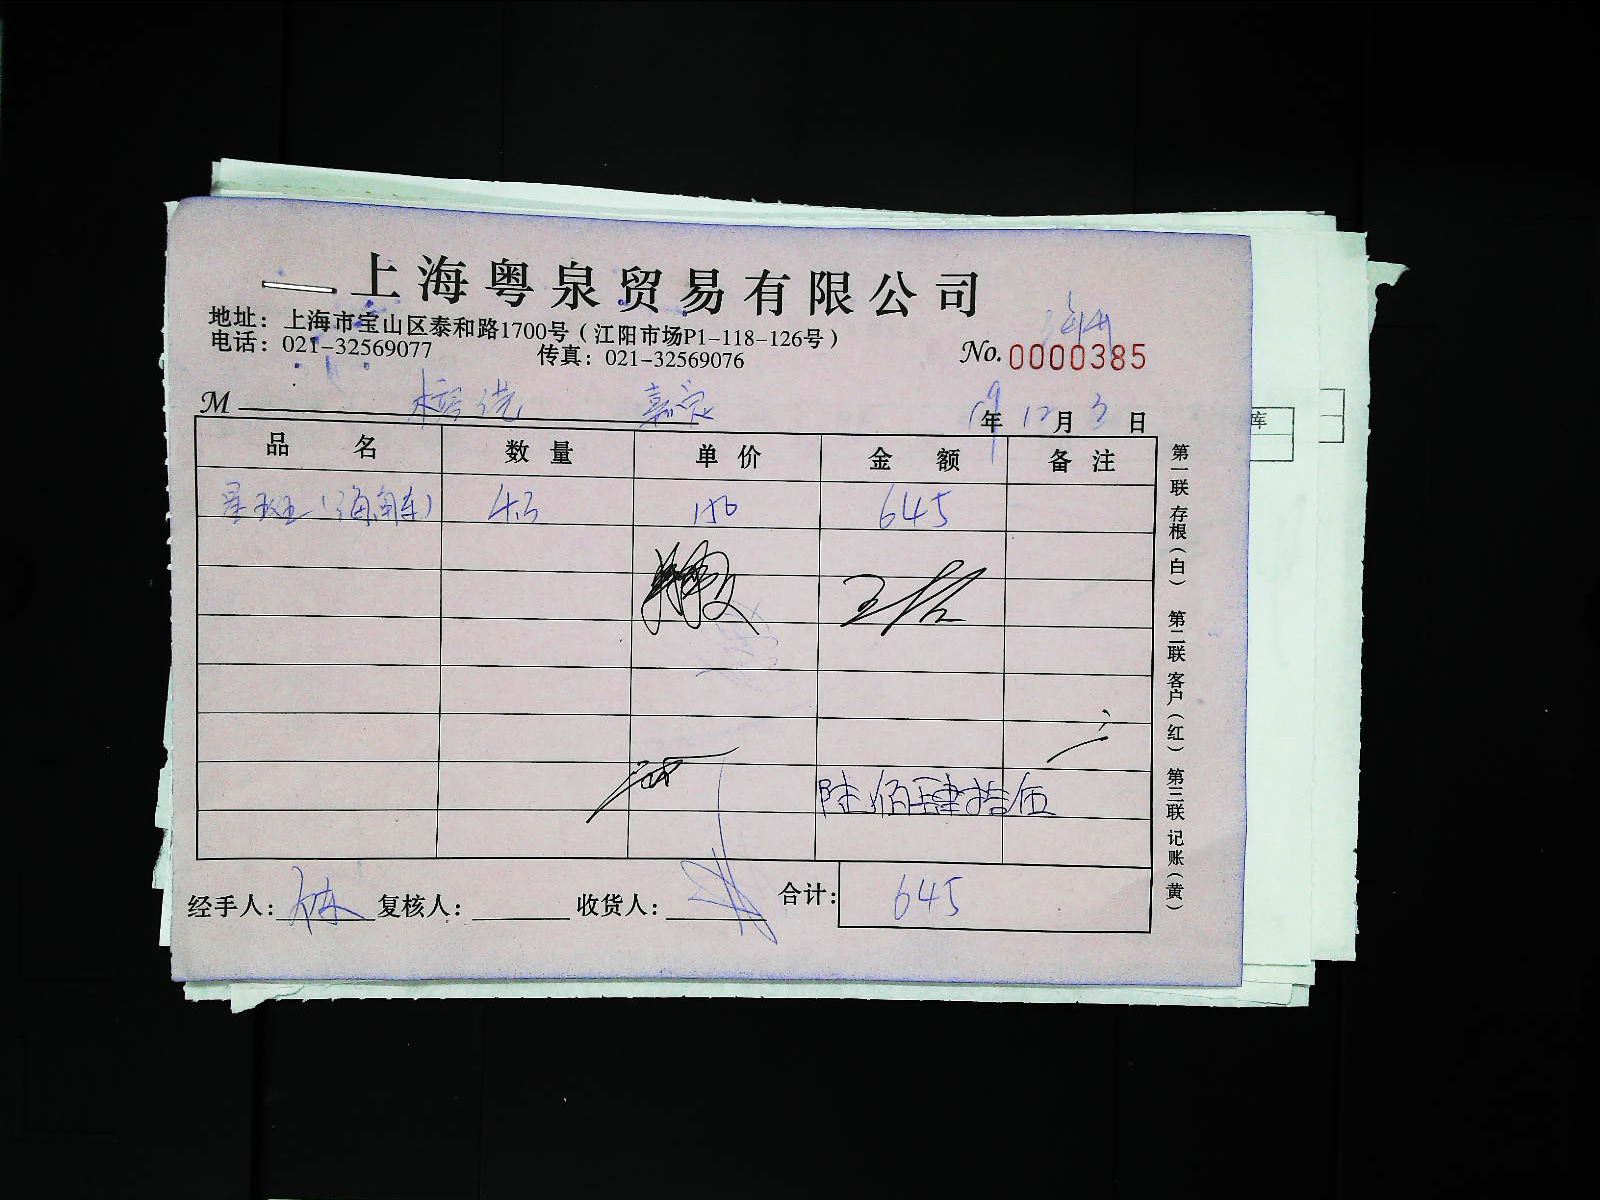 上海粤泉贸易有限公司
地址：上海市宝山区泰和路1700号（江阳市场P1-118-126号）
电话：021-32569077 传真：021-32569076
No.0000385
M 嘉定 19年12月3日
品名 数量 单价 金额 备注
星斑（海南东） 4.3 150 645
陆佰肆拾伍
经手人： 复核人： 收货人： 合计：645
第一联 存根（白） 第二联 客户（红） 第三联 记账（黄）
库